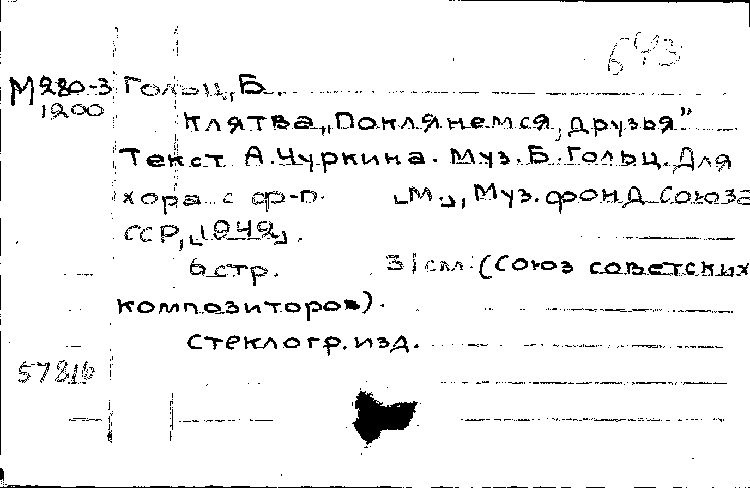 643
М280-3 Гольц, Б.
1200
Клятва „Поклянемся, друзья"
Текст А. Чуркина. Муз. Б. Гольц. Для
хора с ф-п. [М.], Муз. фонд Союза
ССР, [1942].
6 стр. 31 см. (Союз советских
композиторов).
Стеклогр. изд.
57816